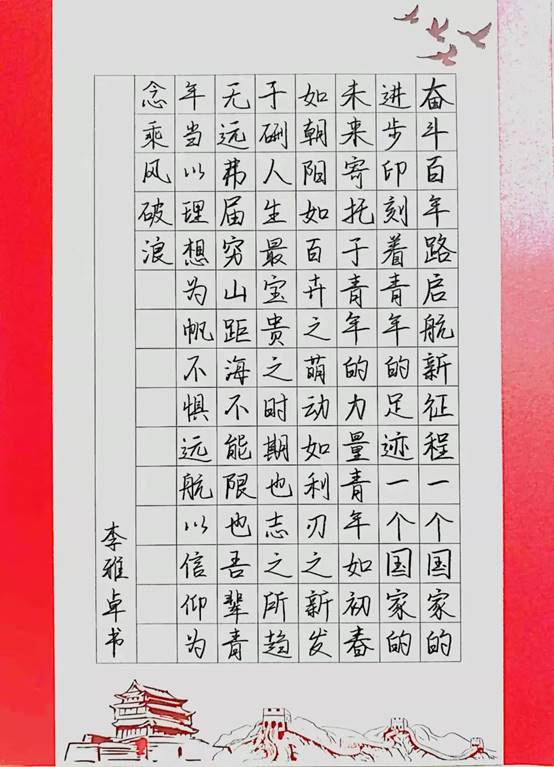 奋斗百年路启航新征程一个国家的
进步印刻着青年的足迹一个国家的
未来寄托于青年的力量青年如初春
如朝阳如百卉之萌动如利刃之新发
于硎人生最宝贵之时期也志之所趋
无远弗届穷山距海不能限也吾辈青
年当以理想为帆不惧远航以信仰为
念乘风破浪
李雅卓书